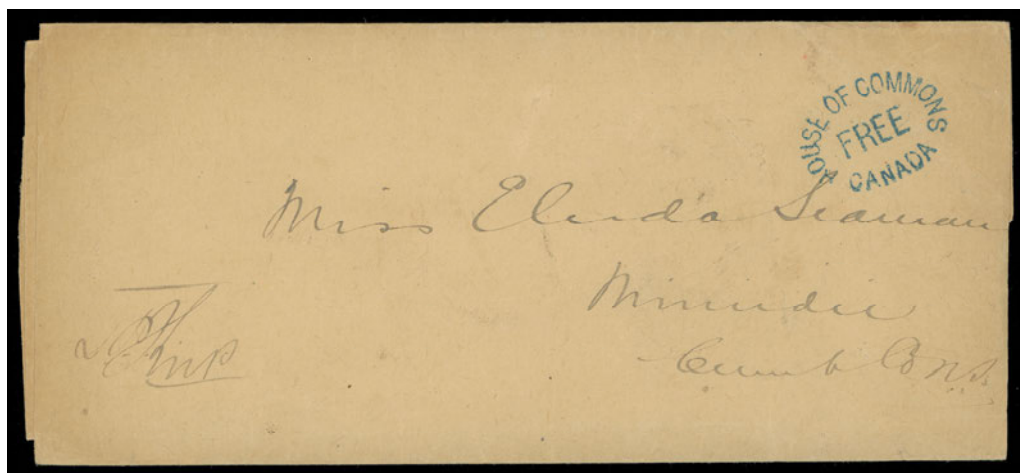 HOUSE OF COMMONS
FREE
CANADA
Miss Elinda Seaman
Minudie
Cumb Co N.S.